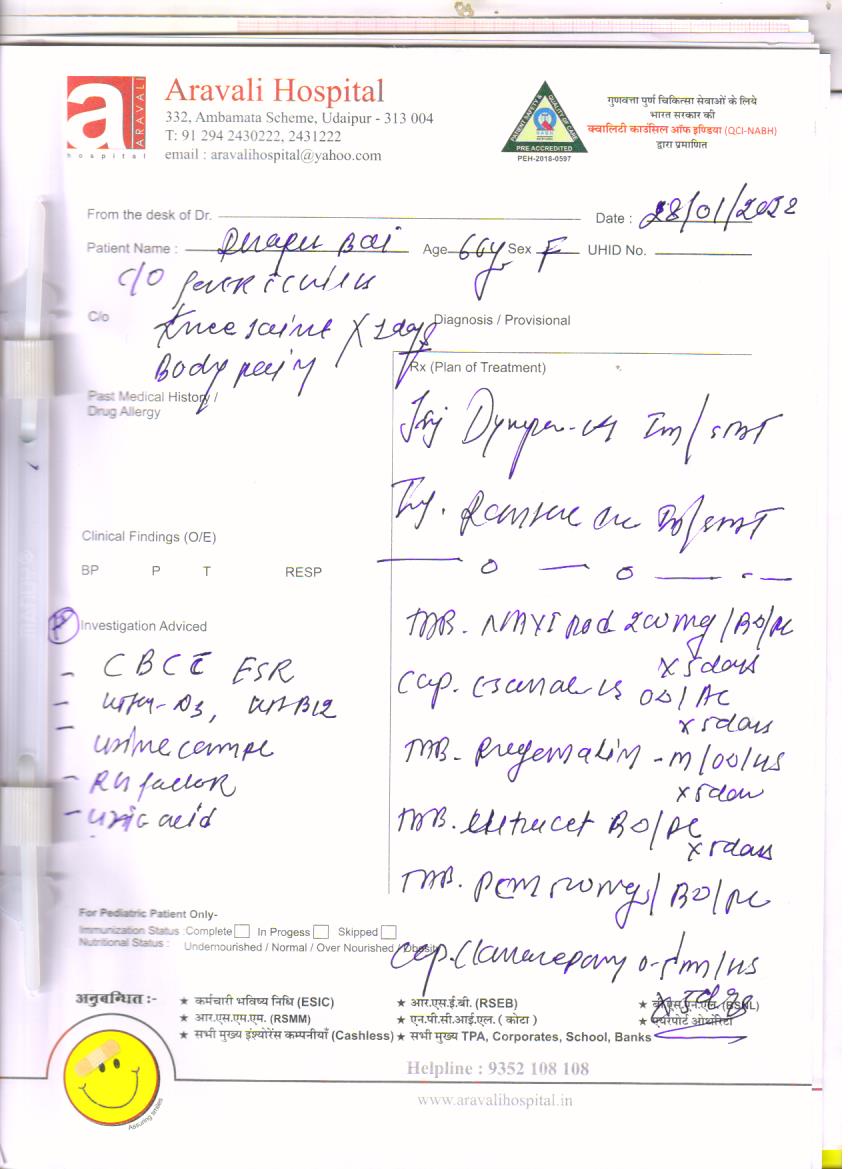 a
ARAVALI
hospital
Aravali Hospital
332, Ambamata Scheme, Udaipur - 313 004
T: 91 294 2430222, 2431222
email : aravalihospital@yahoo.com
PATIENT SAFETY & QUALITY OF CARE
NABH
PRE ACCREDITED
PEH-2018-0597
गुणवत्ता पुर्ण चिकित्सा सेवाओं के लिये
भारत सरकार की
क्वालिटी काउंसिल ऑफ इण्डिया (QCI-NABH)
द्वारा प्रमाणित
From the desk of Dr.
Date : 28/01/2022
Patient Name : Bai Age 66y Sex F UHID No.
C/O
C/o
Knee Joint
Body pain
Diagnosis / Provisional
Rx (Plan of Treatment)
Past Medical History /
Drug Allergy
Inj Im/stat
Inj.
Clinical Findings (O/E)
BP P T RESP
Investigation Adviced
- CBC ESR
- Vit-D3, Vit-B12
- Urine
- RA factor
- Uric acid
TAB. 200mg/BD/PC
x 5 days
Cap. OD/AC
x 5 days
TAB. Pregabalin -M/OD/HS
x 5 days
TAB. BD/PC
x 5 days
TAB. PCM 500mg/BD/PC
Cap. 0-5m/HS
For Pediatric Patient Only-
Immunization Status : Complete In Progess Skipped
Nutritional Status : Undernourished / Normal / Over Nourished / Obesity
अनुबन्धित :-
★ कर्मचारी भविष्य निधि (ESIC) ★ आर.एस.ई.बी. (RSEB) ★ बी.एस.एन.एल. (BSNL)
★ आर.एस.एम.एम. (RSMM) ★ एन.पी.सी.आई.एल. ( कोटा ) ★ एयरपोर्ट ऑथोरिटी
★ सभी मुख्य इंश्योरेंस कम्पनीयाँ (Cashless) ★ सभी मुख्य TPA, Corporates, School, Banks
Assuring smiles
Helpline : 9352 108 108
www.aravalihospital.in